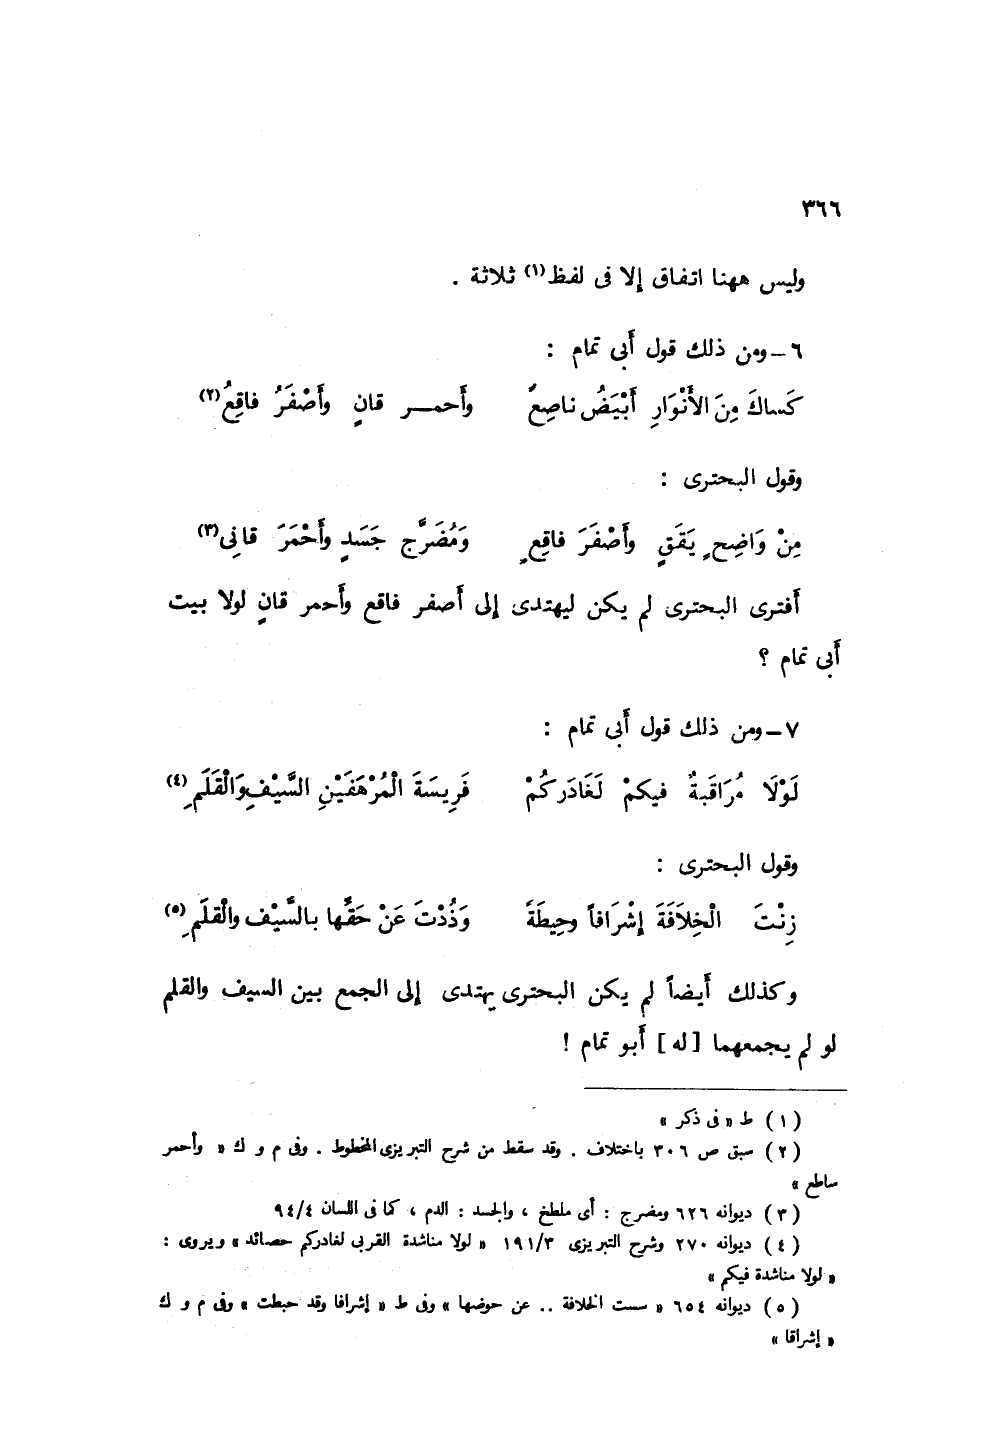 ٣٦٦
وليس ههنا اتفاق إلا فى لفظ(١) ثلاثة .
٦ – ومن ذلك قول أبى تمام :
كَساكَ مِنَ الأَنْوَارِ أَبْيَضُ ناصِعٌ وأَحمـــر قانٍ وأَصْفَرُ فاقِعُ(٢)
وقول البحترى :
مِنْ وَاضِحٍ يَقَقٍ وأَصْفَرَ فاقِعٍ وَمُضَرَّجٍ جَسَدٍ وأَحْمَرَ قانِى(٣)
أفترى البحترى لم يكن ليهتدى إلى أصفر فاقع وأحمر قانٍ لولا بيت
أبى تمام ؟
٧ – ومن ذلك قول أبى تمام :
لَوْلَا مُرَاقَبةٌ فيكمْ لَغَادَركُمْ فَرِيسَةَ الْمُرْهَفَيْنِ السَّيْفِ وَالْقَلَمِ(٤)
وقول البحترى :
زِنْتَ الْخِلَافَةَ إِشْرَافاً وحِيطَةً وَذُدْتَ عَنْ حَقِّها بالسَّيْف والْقلَمِ(٥)
وكذلك أيضاً لم يكن البحترى يهتدى إلى الجمع بين السيف والقلم
لو لم يجمعهما [ له ] أبو تمام !
(١) ط « فى ذكر »
(٢) سبق ص ٣٠٦ باختلاف . وقد سقط من شرح التبريزى المخطوط . وفى م و ك « وأحمر
ساطع »
(٣) ديوانه ٦٢٦ ومضرج : أى ملطخ ، والجسد : الدم ، كما فى اللسان ٩٤/٤
(٤) ديوانه ٢٧٠ وشرح التبريزى ١٩١/٣ « لولا مناشدة القربى لغادركم حصائد » ويروى :
« لولا مناشدة فيكم »
(٥) ديوانه ٦٥٤ « سست الخلافة .. عن حوضها » وفى ط « إشرافا وقد حبطت » وفى م و ك
« إشراقا »